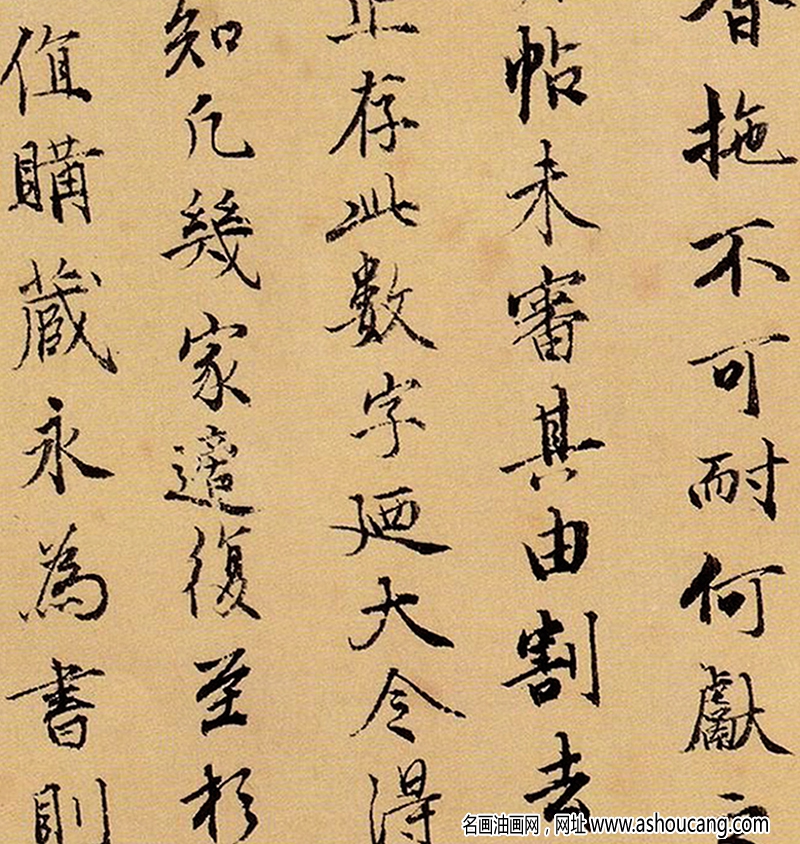 拖不可耐何獻之
帖未審其由割去
止存此數字廼大令得
知凡幾家適復至於
值購藏永為書則
名画油画网，网址 www.ashoucang.com